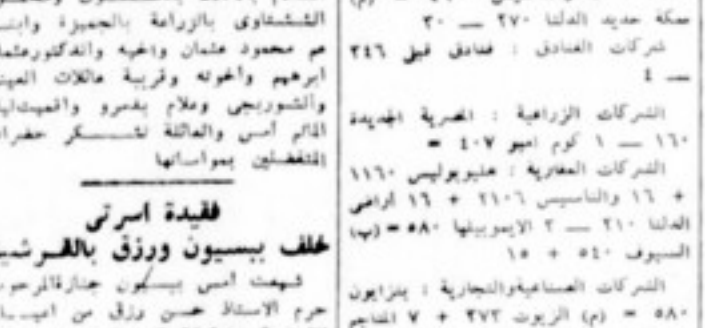 سكة حديد الدلتا ٢٧٠ — ٣٠
شركات الفنادق : فنادق قبلى ٣٤٦
— ٤
الشركات الزراعية : المصرية الجديدة
١٦٠ — ١ كوم امبو ٤٠٧ =
الشركات العقارية : هليوبوليس ١١٦٠
+ ١٦ والتاسيس ٢١٠٦ + ١٦ أراضى
الدلتا ٢١٠ — ٢ الايموبيليا ٥٨٠ = (ب)
السيوف ٥٤٠ + ١٥
الشركات الصناعية والتجارية : بنزايون
٥٨٠ = (م) الزيوت ٣٧٣ + ٧ المناجم
الششتاوى بالزراعة بالجميزة وابنـ
عم محمود عثمان واخيه والدكتور عثما
ابرهيم وأخوته وقريبة عائلات العيـ
والشوربجى وعلام بدمرو واقميت ليا
المأتم أمس والعائلة تشكر حضرا
المتفضلين بمواساتها
فقيدة اسرتى
خلف ببسيون ورزق بالقرشيـ
شيعت أمس ببسيون جنازة المرحو
حرم الاستاذ حسن رزق من اعيـا